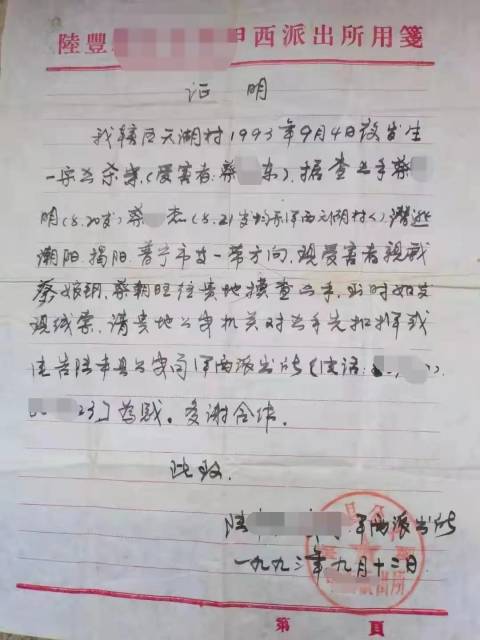 陸豐 甲西派出所用箋
证 明
我辖区元湖村1993年9月4日晚发生
一宗凶杀案(受害者:蔡 东)。据查凶手蔡
明(男.20岁)蔡 志(男.21岁均系甲西元湖村人)潜逃
潮阳、揭阳、普宁市一带方向,现受害者亲戚
蔡娘 、蔡朝旺往贵地摸查凶手,当时如发
现线索,请贵地公安机关对凶手先扣押或
告陆丰县公安局甲西派出所(电话:
23)为盼。多谢合作。
此致.
陆 甲西派出所
一九九三年九月十二日
第 頁